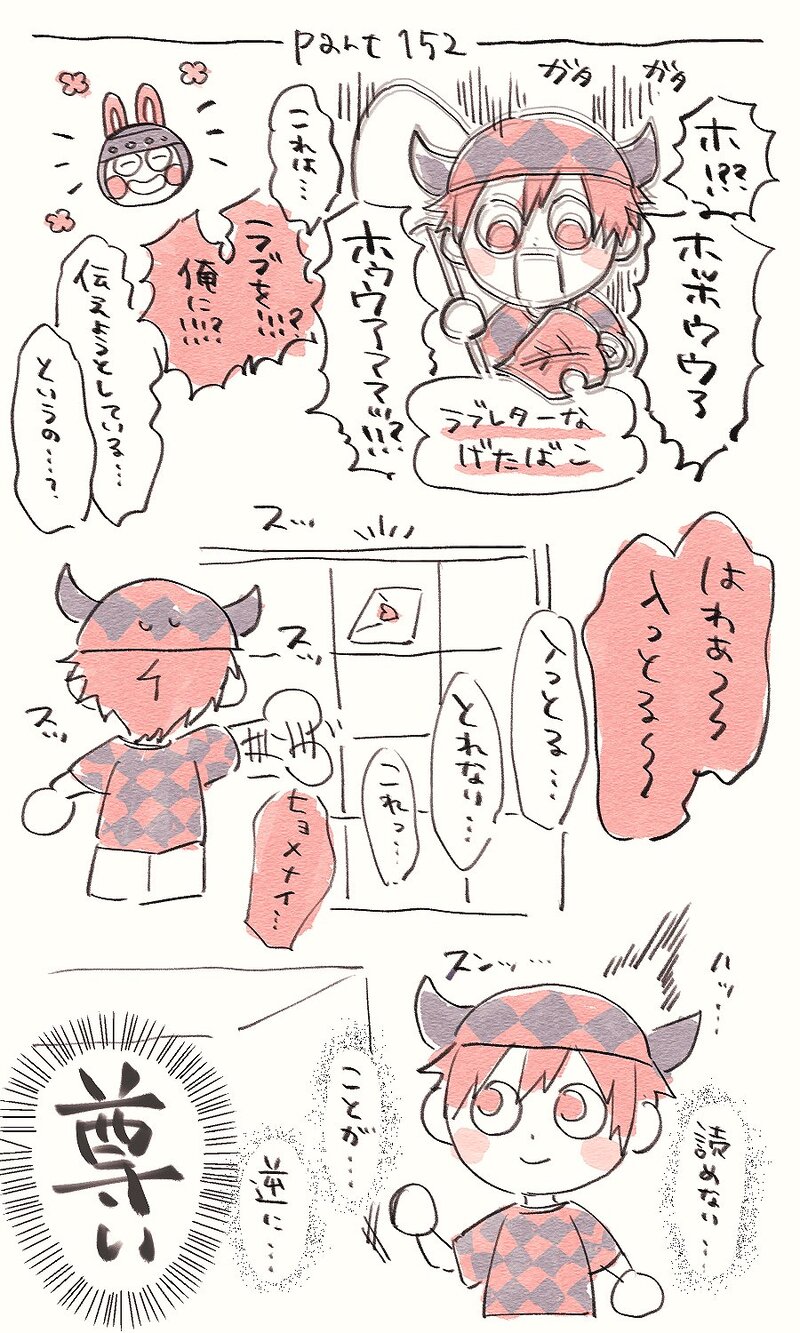 part 152
ガタ
ガタ
ホ!!??
ホホホウウウ
ラブレターな
げたばこ
ホゥウアアア!!!?
これは…
ラブを!!!?
俺に!!!?
伝えようとしている…
というの…?
はわあ〜〜
入っとる〜〜
入っとる…
とれない…
これっ…
ヒョメナイ…
スッ…
スッ
スッ
ハッ…
スンッ…
読めない…
ことが…
逆に…
尊い